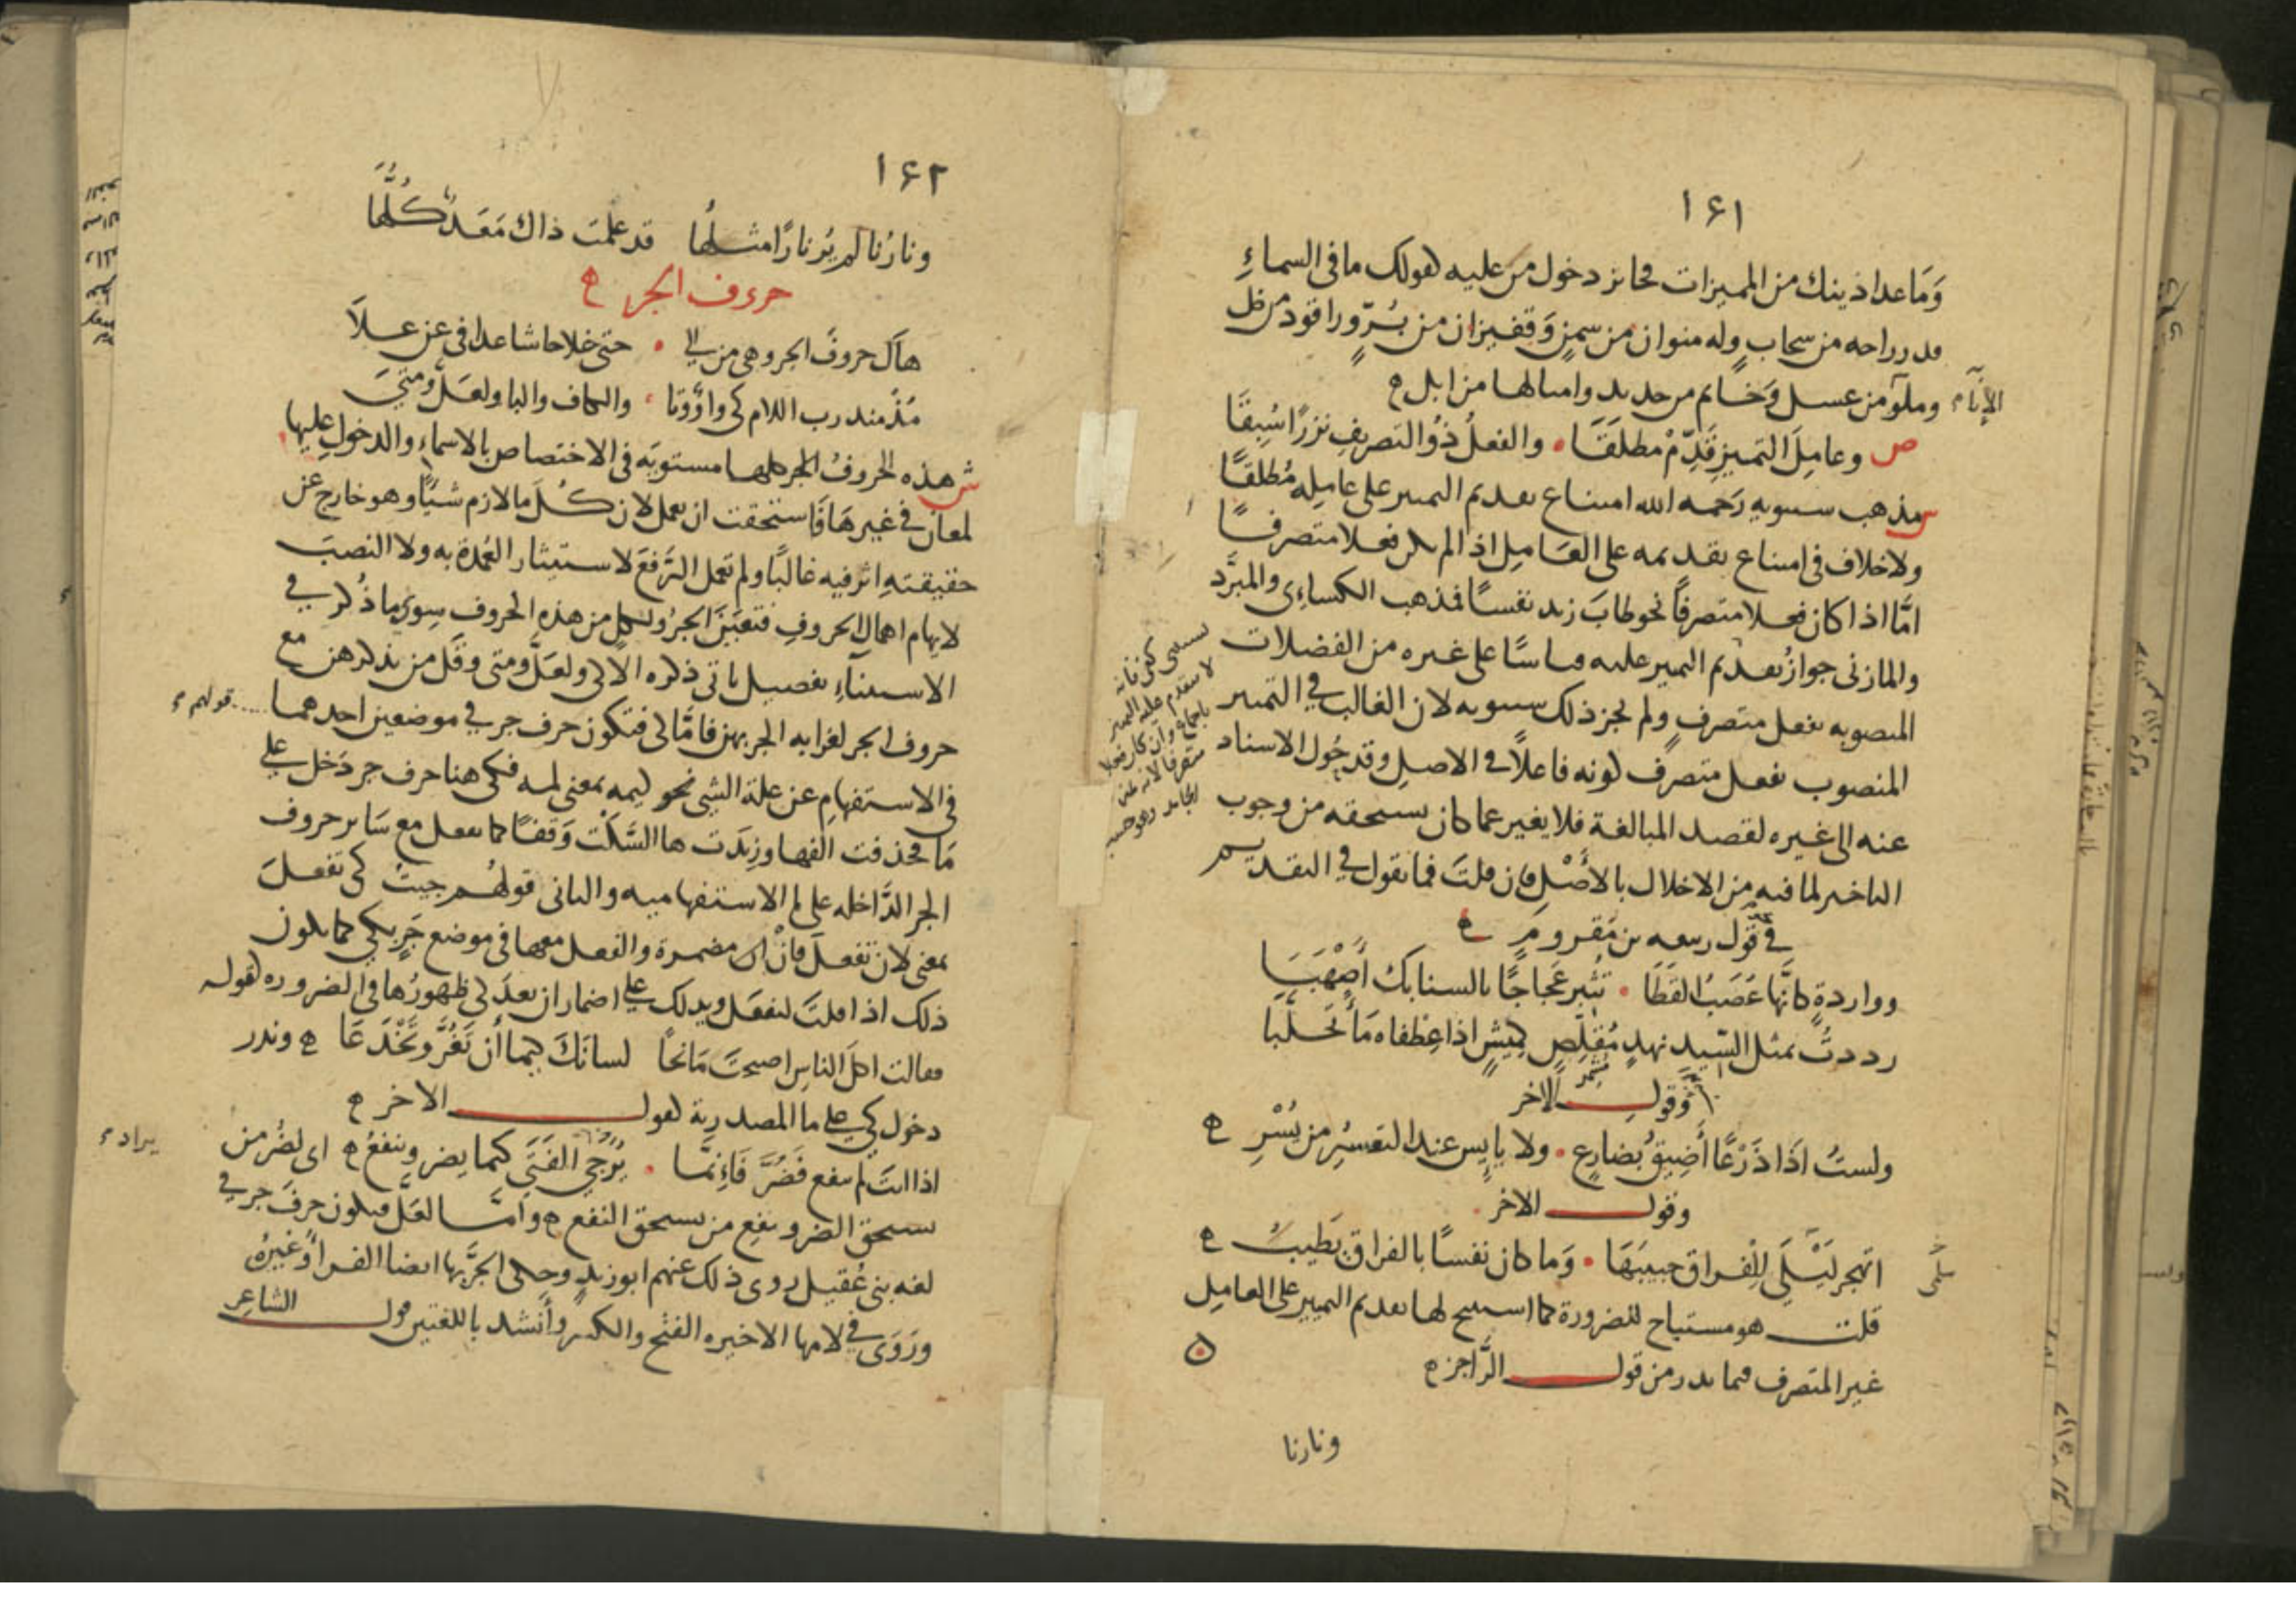 ١٤١
وَمَا عدا ذينك من المميزات فجائز دخول من عليه كقولك ما في السماءِ
قدر راحه من سحاب وله منوان من سمنٍ وَقفيزان من بُرٍّ وراقود من خل
وملؤ من عسل وَخاتم من حديد وامثالها من ابل
الإناء
ص وعامِلَ التمييزِ قَدِّمْ مطلقَا والفعلُ ذُو التصريفِ نزرًا سُبِقَا
س مذهب سيبويه رَحمه الله امتناع تقديم التمييز على عامِله مُطلقًا
ولا خلاف في امتناع تقديمه على العَامِل اذا لم يكن فعلا متصرفًا
امَّا اذا كان فعلا متصرفاً نحو طابَ زيد نفسًا فمذهب الكساءِى والمبرَّد
والمازنى جوازُ تقديم التمييز عليه قياسًا على غيره من الفضلات
المنصوبه بفعل متصرفٍ ولم يجز ذلك سيبويه لان الغالب في التمييز
المنصوب بفعل متصرف كونه فاعلاً في الاصلِ وقد حُول الاسناد
عنه الى غيره لقصد المبالغة فلا يغير عما كان يستحقه من وجوب
التاخير لما فيه من الاخلال بالأصْلِ فان قلتَ فما تقول في التقديم
في قول ربيعه بن مَقرومٍ
وواردةٍ كانَّها عُصَبُ القَطَا تثير عَجاجًا بالسنابك أَصْهَبَا
رددتُ بمثل السِّيدِ نهدٍ مُقلِّصٍ كميشٍ اذا عِطفاه مَاءً تحلَّبا
مشمر
وقول الاخر
ولستُ اذَا ذَرْعًا أَضِيقُ بُضارِعٍ ولا يايِس عند التعسُّرِ من يُسْرِ
وقول الاخر
اتهجر لَيْلَى للِفراق حبيبَهَا وَما كان نفسًا بالفراق تَطيبُ
سلمى
قلت هو مستباح للضرورة كما استبيح لها تقديم التمييز على العامِل
غير المتصرف فيما ندر من قول الرَّاجز
ونارنا
١٤٢
ونارُنا لم يُرَ نارًا مثلُها قد علمت ذاك مَعَدٌّ كُلُّها
حروف الجر
هاكَ حروفَ الجر وهي من الى حتى خلا حاشا عدا في عن علَا
مُذْ منذ رب اللام كى واوٌ وتا والكاف والبا ولعَلَّ ومتىَ
ش هذه الحروفُ الجر كلها مستويَه في الاختصاص بالاسماءِ والدخول عليها
لمعانٍ في غيرهَا فاستحقت ان تعمل لان كُلَّ ما لازم شيًا وهو خارج عن
حقيقتهِ اثر فيه غالبًا ولم تعمل الرَّفعَ لاستيثار العُمدة به ولا النصبَ
لايهام اهمالِ الحروفِ فتعيَّنَ الجرُ ولكل من هذه الحروف سِوى ما ذُكر في
الاستثناءِ تفصيل ياتى ذكره الا كى ولعَلَّ ومتى وقَل من يذكرهن مع
حروف الجر لغرابه الجر بهن فامَّا كى فتكون حرف جر في موضعين احدهما
قولهم
في الاستفهامِ عن علة الشي نحو كيمه بمعنى لمه فكى هنا حرف جر دَخل على
مَا فحذفت الفها وزِيدَت ها السَّكْت وَقفًا كما يفعل مع سَاير حروف
الجر الدَّاخله على ما الاستفهاميه والثانى قولهُم جيتُ كى تفعلَ
بمعنى لان تفعلَ فانْ مضمرة والفعل معها في موضع جَرٍ بكى كما يكون
ذلك اذا قلتَ لتفعَل ويدلك على اضمار ان بعدَ كى ظهورُها في الضروره كقوله
فقالت اكلَ الناسِ اصبحتَ مَانحًا لسانَكَ كيما أن تَغُرَّ وتخْدَعَا وندر
دخول كى على ما المصدرية كقول الاخر
اذا انتَ لم تنفع فَضُرَّ فَاِنمَّا يُرَجَّي الفَتَى كيما يضر وينفعُ اى لضُر من
يراد
يستحق الضر ونفعِ من يستحق النفع وامَّا لعَلَّ فيكون حرفَ جر في
لغه بنى عُقيل روى ذلك عنهم ابو زيدٍ وحكى الجرَّ بها ايضا الفراءُ وغيرُه
ورَوَى في لامها الاخيره الفتح والكسر وأنشد باللغتين قول الشاعِر